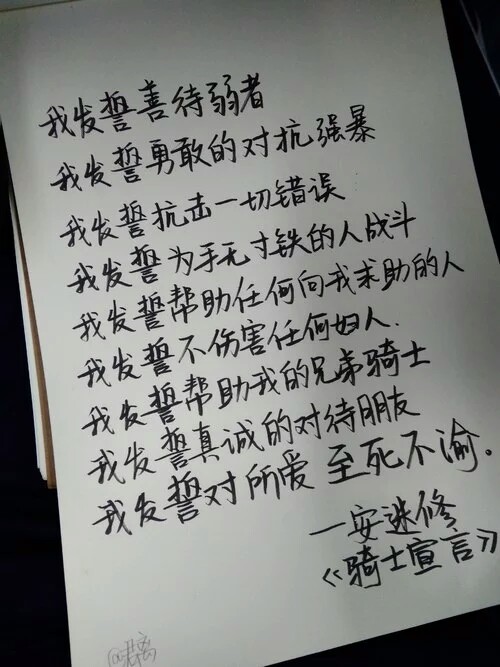 我发誓善待弱者
我发誓勇敢的对抗强暴
我发誓抗击一切错误
我发誓为手无寸铁的人战斗
我发誓帮助任何向我求助的人
我发誓不伤害任何妇人.
我发誓帮助我的兄弟骑士
我发誓真诚的对待朋友
我发誓对所爱至死不渝。
—安迷修
《骑士宣言》